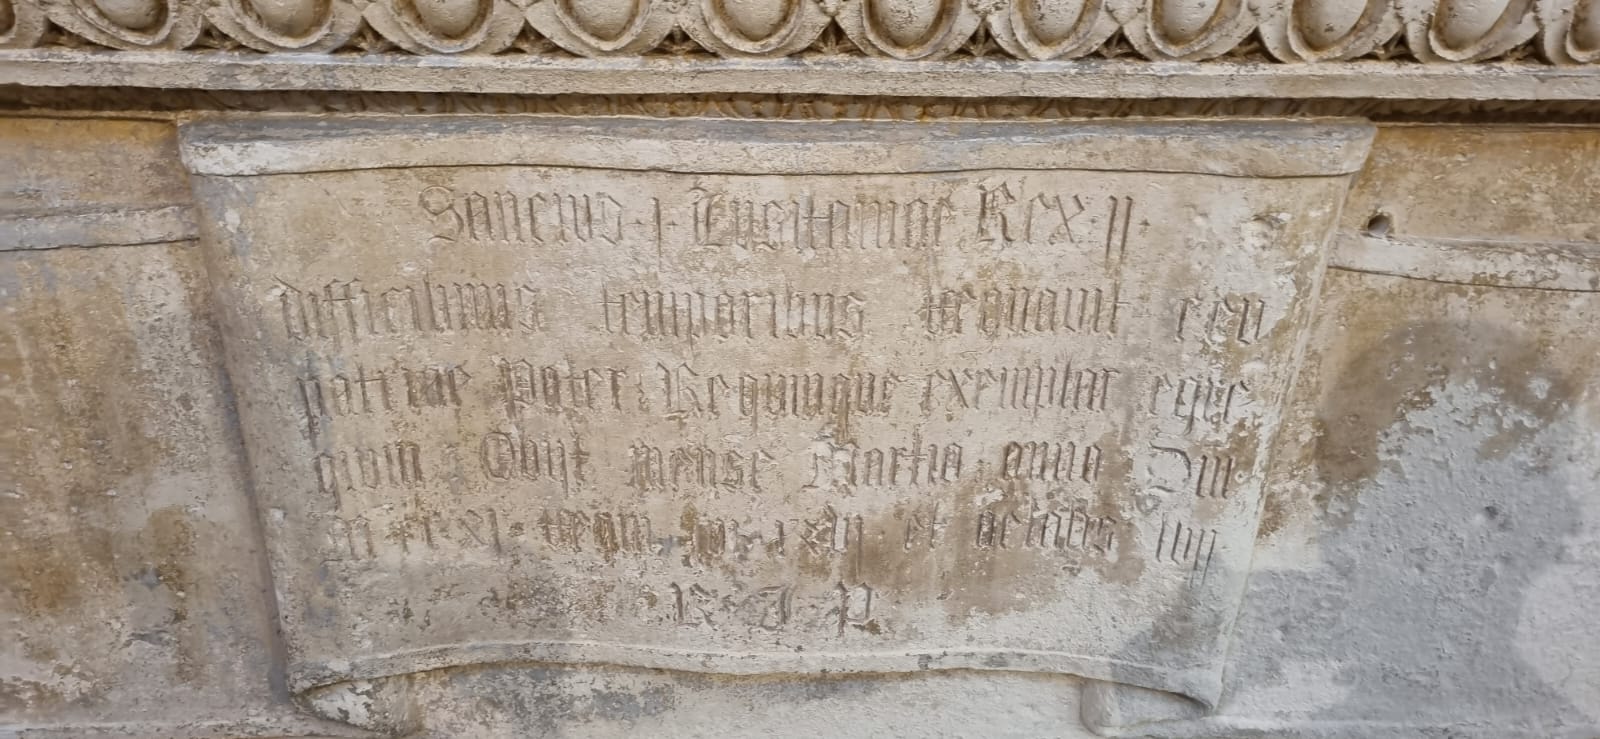 Sancius · I · Lusitaniae Rex · II ·
difficilimis temporibus regnavit ceu
patriae Pater : Regumque exemplar egre-
gium : Obijt mense Martio · anno Dni
M · ccxi · regni et aetatis
R · I · P ·